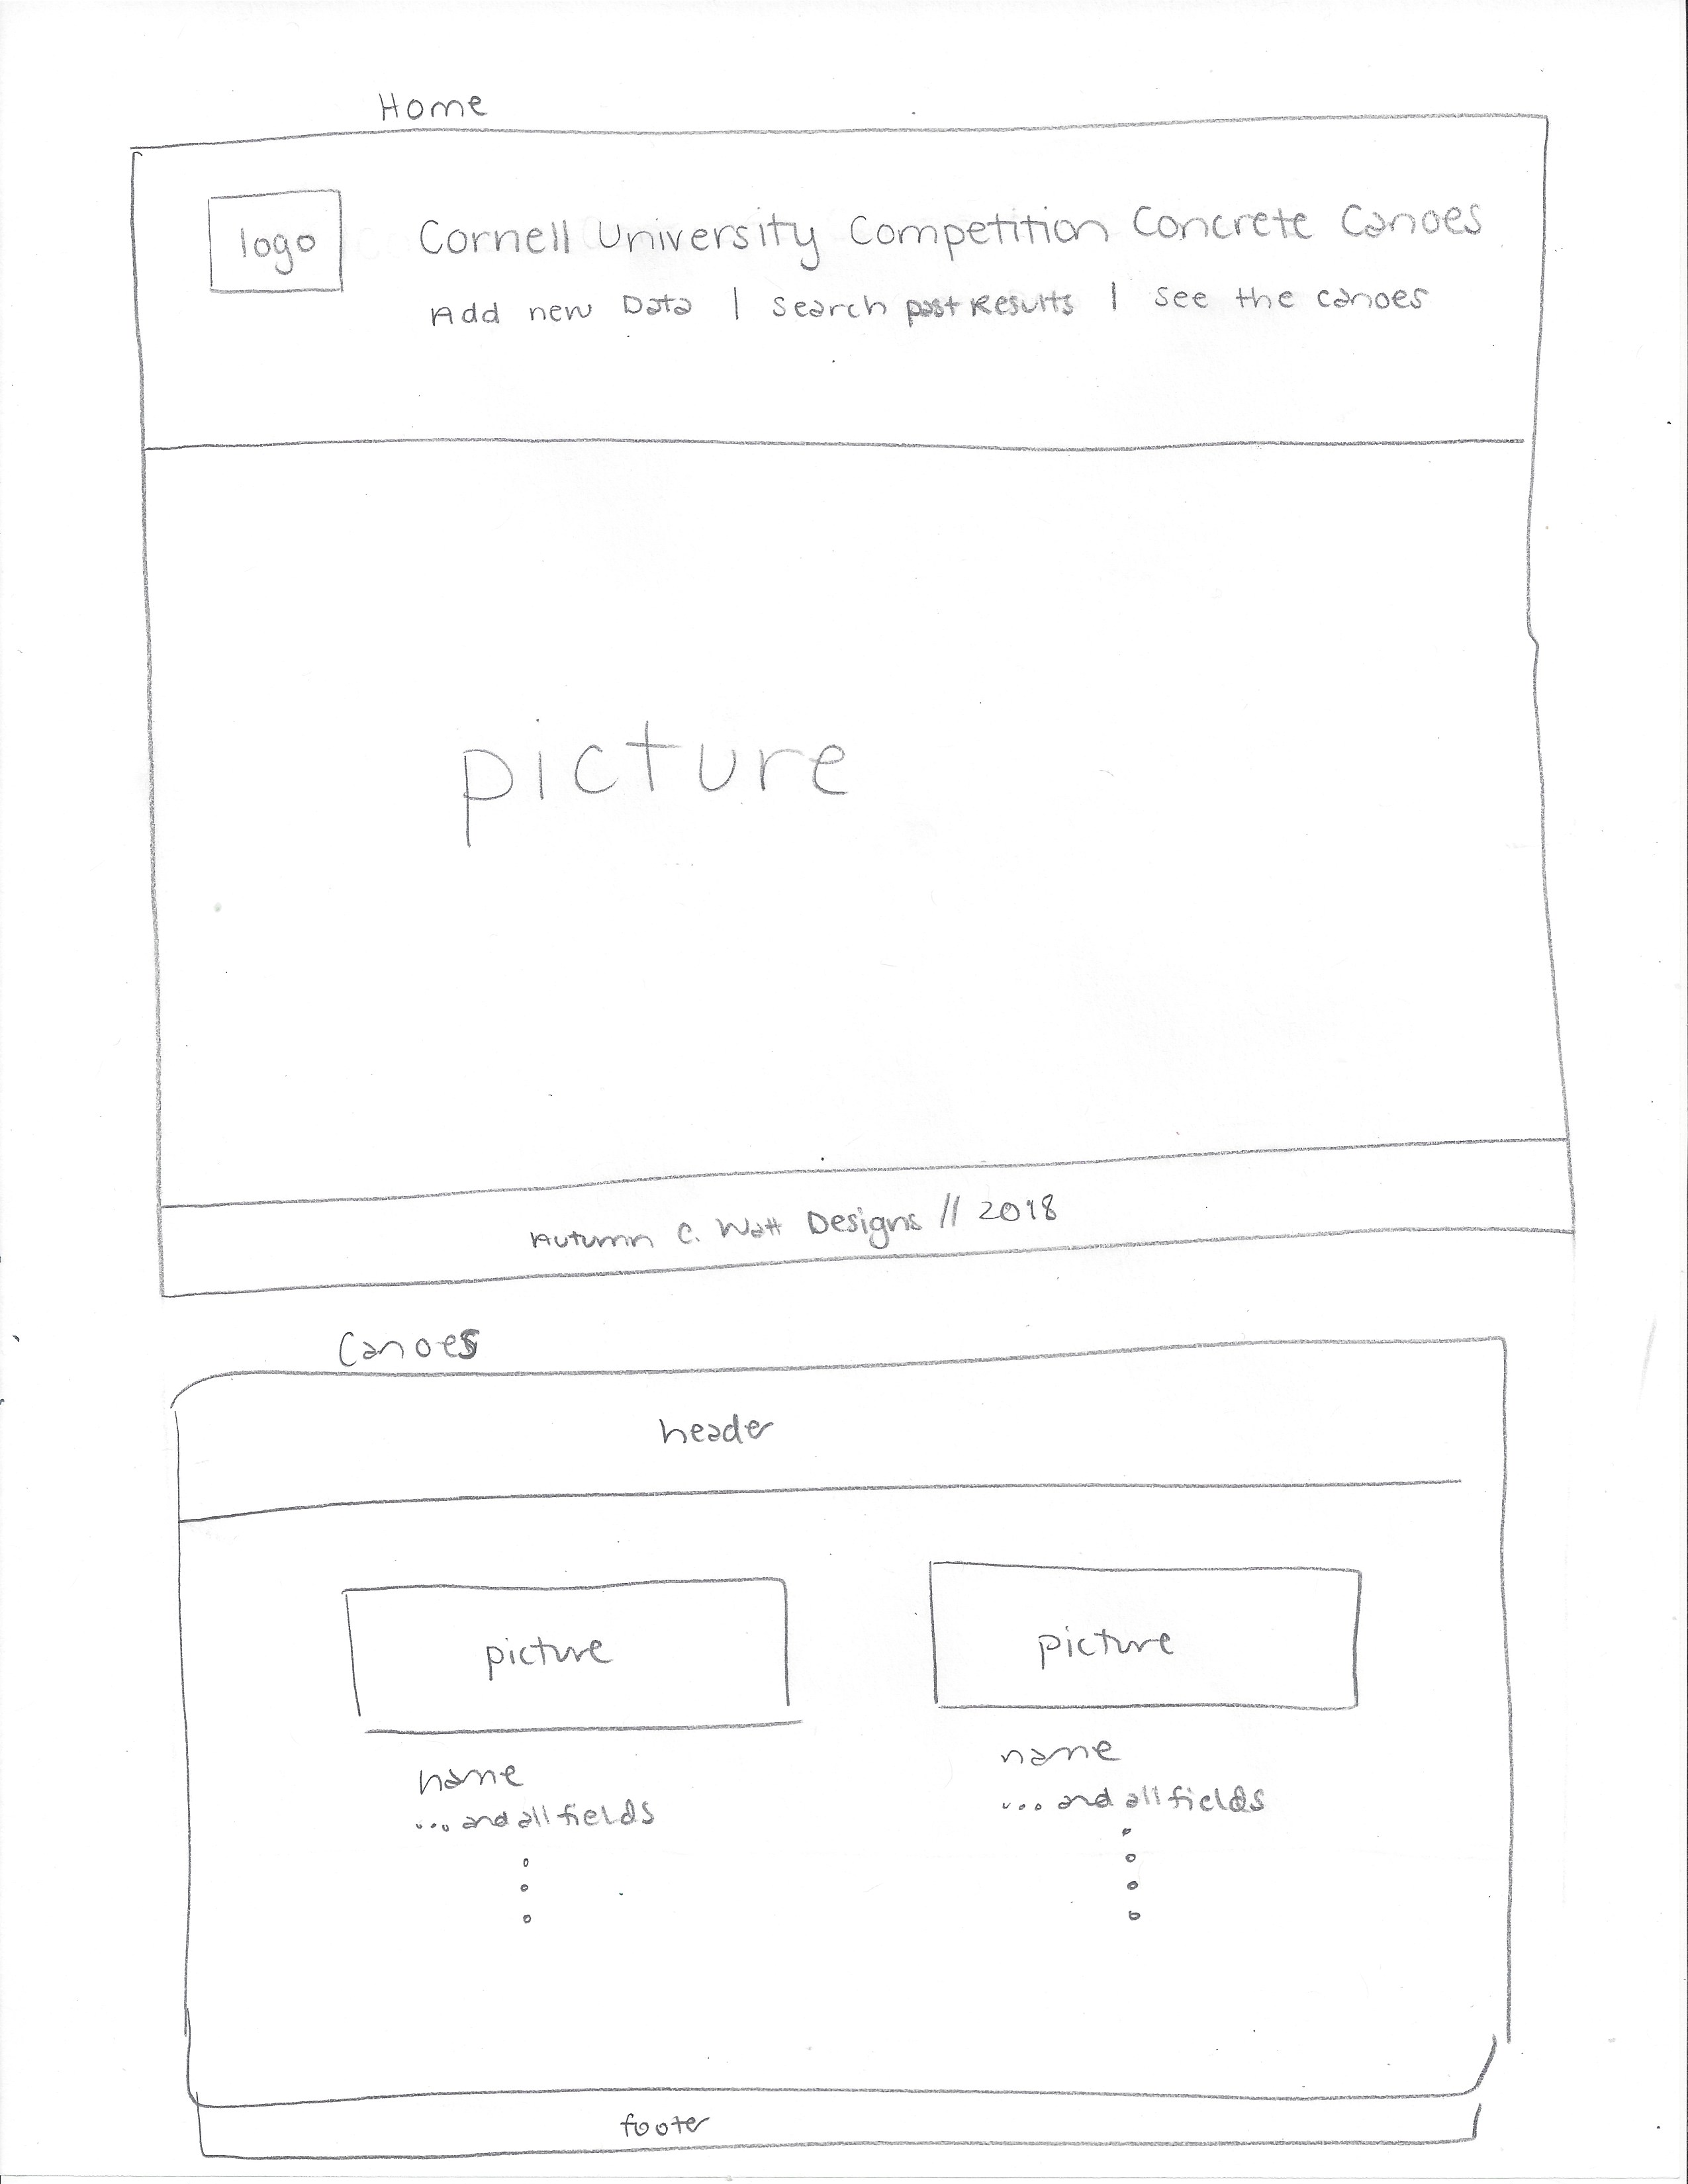 Home
logo
Cornell University Competition Concrete Canoes
Add new Data | Search past Results | See the canoes
picture
Autumn C. Watt Designs // 2018
Canoes
header
picture
picture
name
... and all fields
name
... and all fields
footer